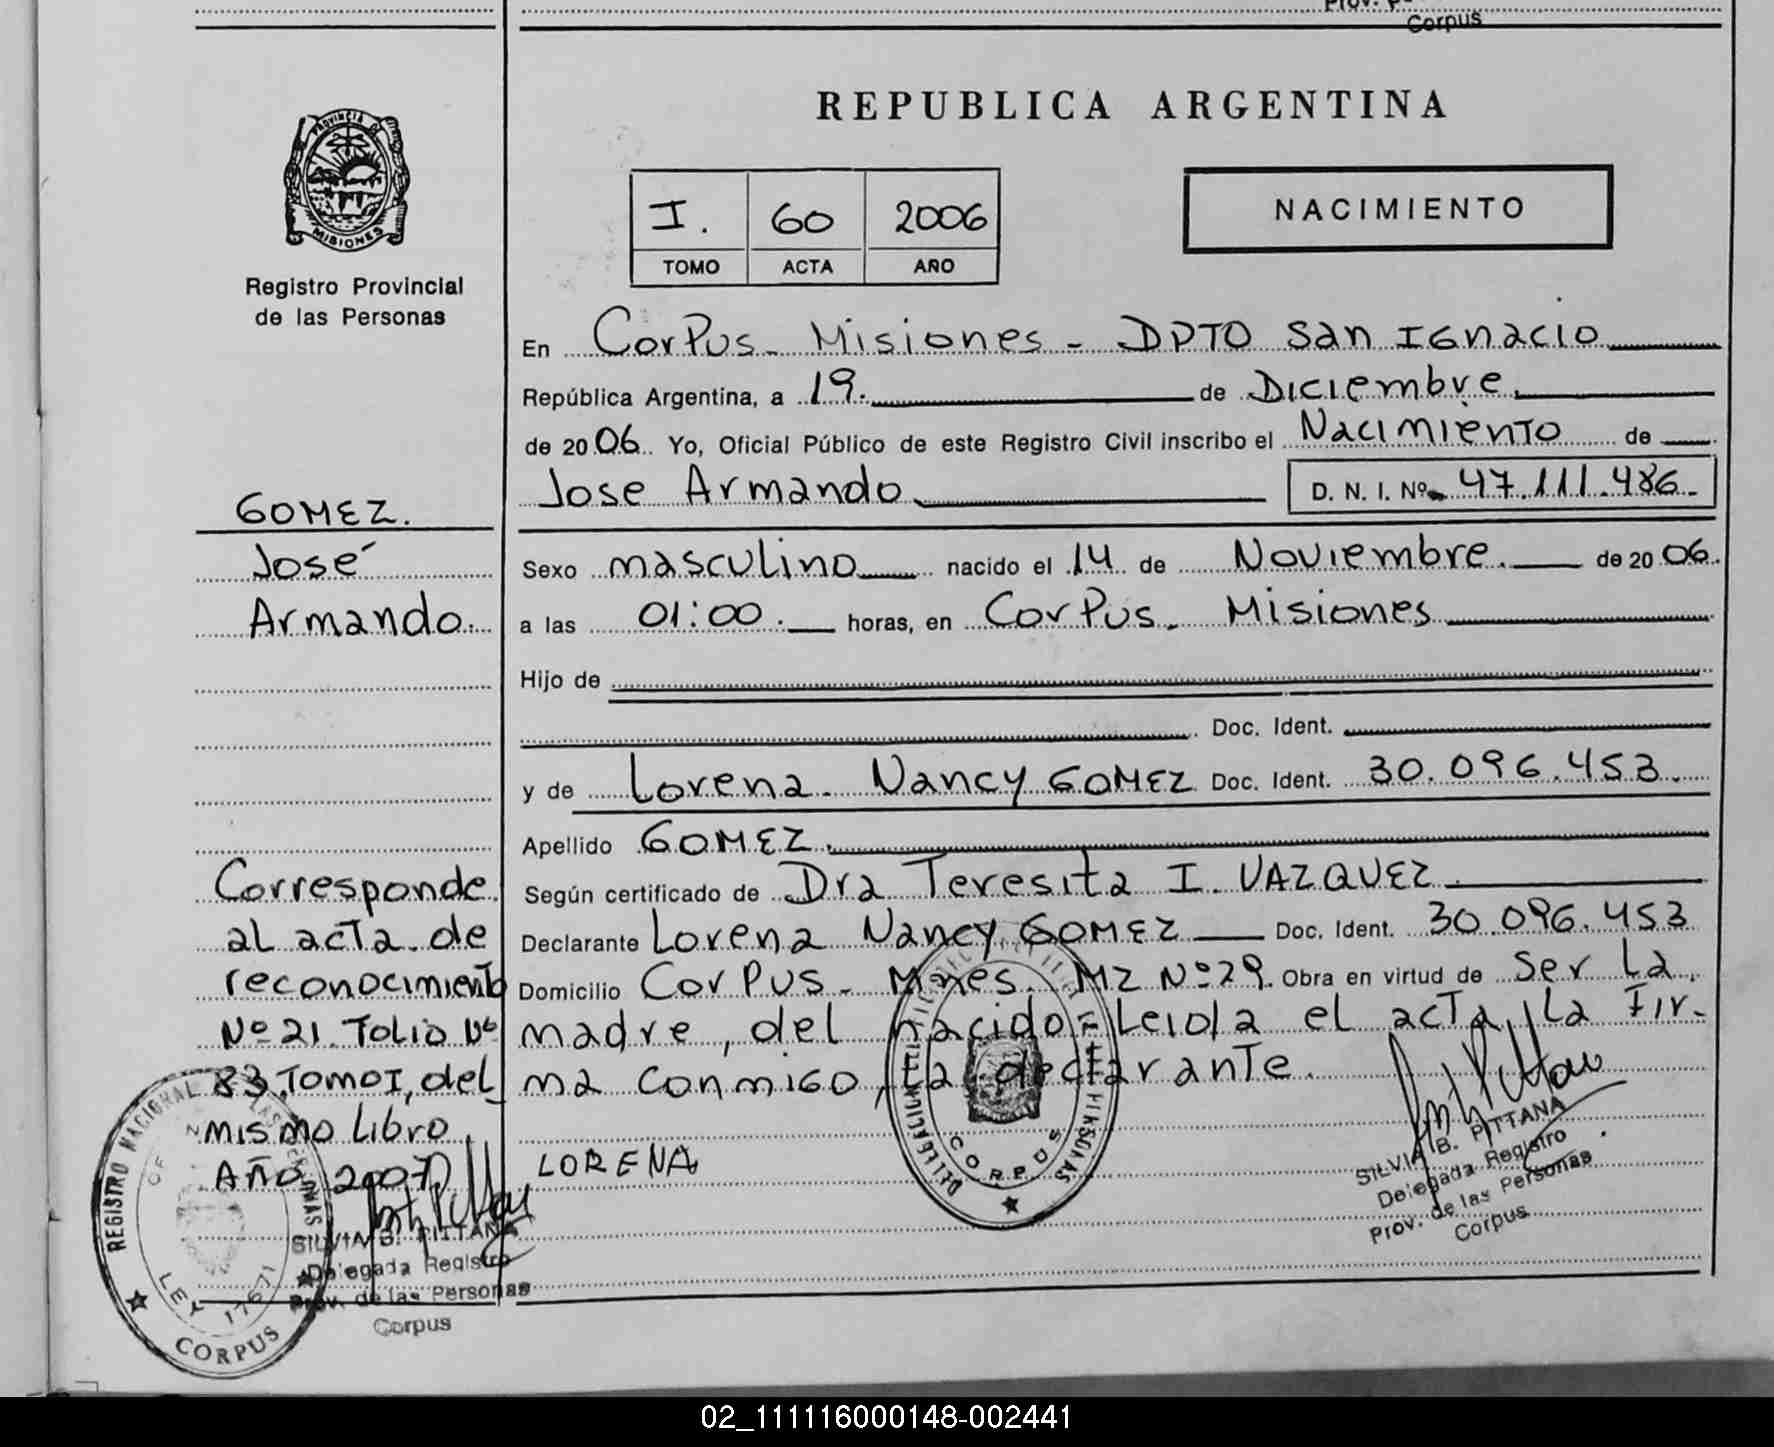 Prov.
Corpus
REPUBLICA ARGENTINA
PROVINCIA DE
MISIONES
Registro Provincial
de las Personas
I. 60 2006
TOMO ACTA AÑO
NACIMIENTO
En Corpus - Misiones - DPTO San Ignacio
República Argentina, a 19. de Diciembre.
de 2006. Yo, Oficial Público de este Registro Civil inscribo el Nacimiento de
Jose Armando D. N. I. Nº 47.111.486.
GOMEZ.
José
Armando.
Sexo masculino nacido el 14 de Noviembre. de 2006.
a las 01:00. horas, en Corpus. Misiones
Hijo de
Doc. Ident.
y de Lorena. Nancy GOMEZ Doc. Ident. 30.096.453.
Apellido GOMEZ.
Según certificado de Dra Teresita I. VAZQUEZ
Declarante Lorena Nancy GOMEZ Doc. Ident. 30.096.453
Domicilio Corpus - Mnes. Mz Nº29. Obra en virtud de ser la
madre, del nacido = Leida el acta, La Fir-
ma conmigo, la declarante.
LORENA
Corresponde
al acta de
reconocimiento
Nº 21. Folio Nº
83. Tomo I, del
mismo Libro
Año 2007
SILVIA B. PITTANA
Delegada Registro
Prov. de las Personas
Corpus
REGISTRO NACIONAL DE LAS PERSONAS
LEY 17671
CORPUS
CORPUS
SILVIA B. PITTANA
Delegada Registro
Prov. de las Personas
Corpus
02_111116000148-002441